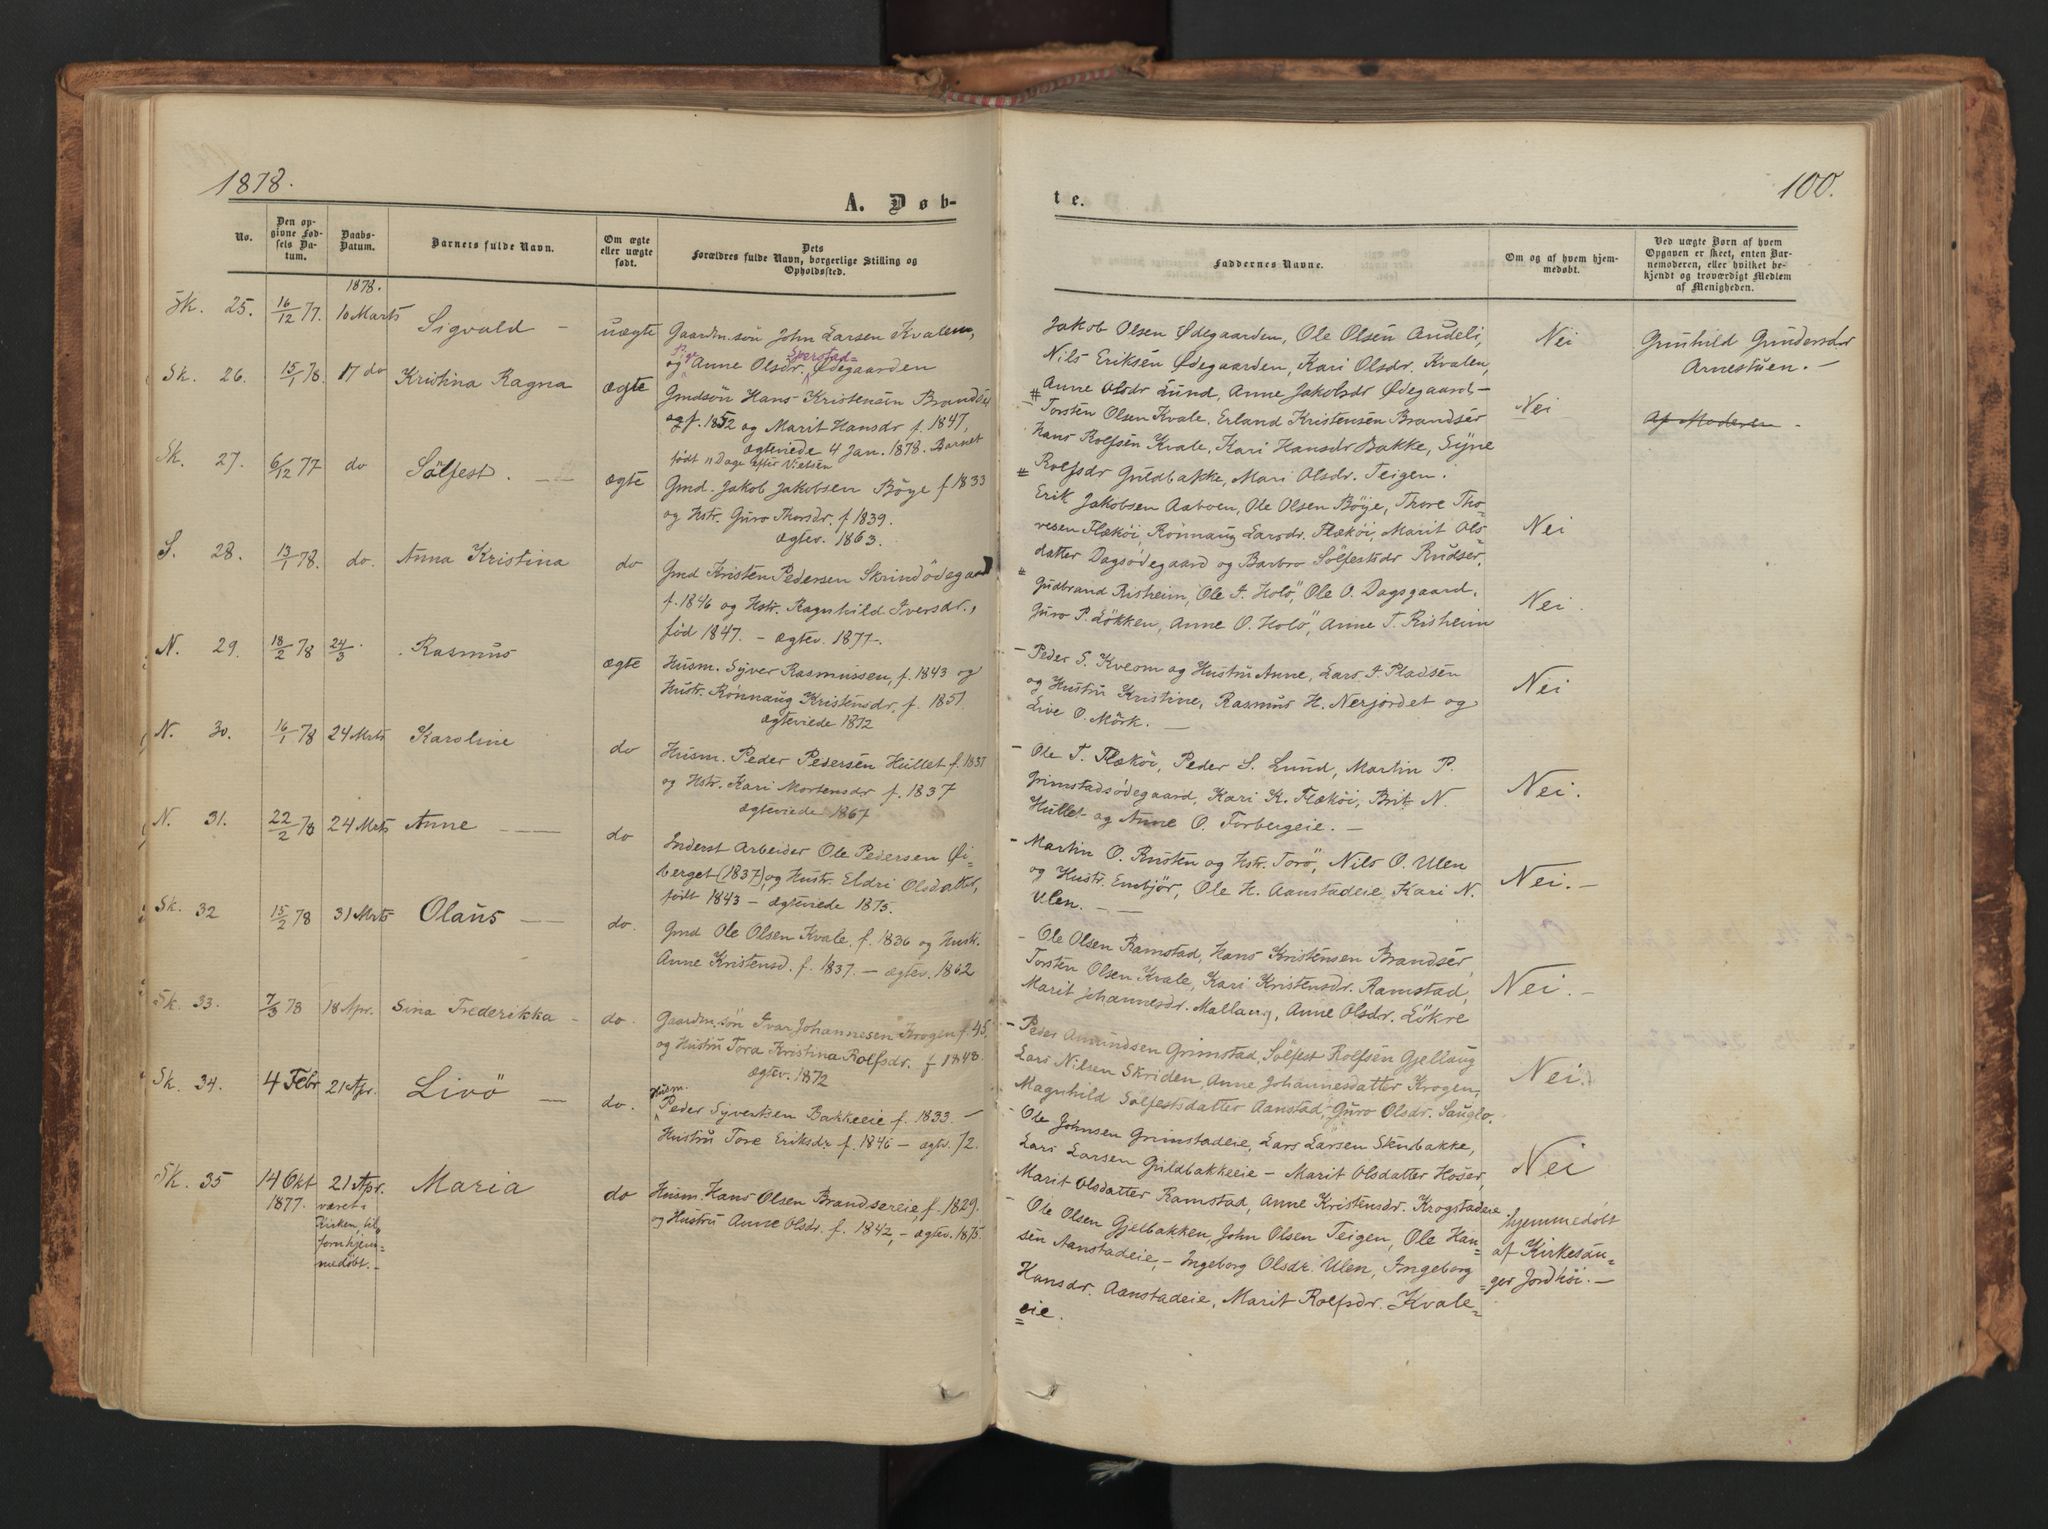 1878.
100.
A. Døb-
te.
No.
Den op-
givne Fød-
sels Da-
tum.
Daabs-
Datum.
Barnets fulde Navn.
Om ægte
eller uægte
født.
Dets
Forældres fulde Navn, borgerlige Stilling og
Opholdssted.
Faddernes Navne.
Om og af hvem hjem-
medøbt.
Ved uægte Børn af hvem
Opgaven er skeet, enten Bar-
nemoderen, eller hvilket be-
kjendt og troværdigt Medlem
af Menigheden.
1878.
Sk. 25. 16/12 77. 10 Marts Sigvald – uægte
Gaardm.søn John Larsen Kvalem,
og Pige Anne Olsdr. Sperstad- Ødegaarden
Jakob Olsen Ødegaarden, Ole Olsen Audeli,
Nils Eriksen Ødegaarden, Kari Olsdr. Kvalen,
Anne Olsdr Lund, Anne Jakobsdr Ødegaard –
Nei
Gunhild Gundersdr
Arnestuen. –
Sk. 26. 15/1 78. 17 do Kristina Ragna ægte
Gmdsøn Hans Kristensen Brandsér
og f. 1852 og Marit Hansdr f. 1847,
ægteviede 4 Jan. 1878. Barnet
født 11 Dage efter Vielsen
Torsten Olsen Kvale, Erland Kristensen Brandsér
Hans Rolfsen Kvale, Kari Hansdr Bakke, Syne
Rolfsdr Guldbakke, Mari Olsdr. Teigen.
Nei
Af Moderen –
Sk. 27. 6/12 77 do Sölfest. – – ægte
Gmd. Jakob Jakobsen Böye f 1833
og Hstr. Guro Thorsdr. f 1839.
ægtev. 1863.
Erik Jakobsen Aaboen, Ole Olsen Böye, Thore Tho-
resen Flæköi, Rönnaug Larsdr. Flæköi, Marit Ols-
datter Dagsödegaard og Barbro Sölfestsdr Rudser.
Nei
S. 28. 13/1 78. do. Anna Kristina do
Gmd Kristen Pedersen Skrindödegaard
f. 1846 og Hstr. Ragnhild Iversdr.,
fød 1847. – ægtev. 1877.
Gudbrand Risheim, Ole I. Holö, Ole O. Dagsgaard,
Guro P. Lökken, Anne O. Holö, Anne T. Risheim
Nei.
N. 29. 18/2 78 24/3 Rasmus ægte
Husm. Syver Rasmussen, f. 1843 og
Hustr. Rønnaug Kristensdr. f. 1851.
ægteviede 1872
– Peder S. Kveom og Hustru Anne, Lars I. Pladsen
og Hustru Kristine, Rasmus H. Nerjordet og
Live O. Mörk. –
Nei
N. 30. 16/1 78 24 Mrts Karoline do
Husm. Peder Pedersen Hullet f. 1837
og Hstr. Kari Mortensdr f. 1837
ægteviede 1867
– Ole T. Flæköi, Peder S. Lund, Martin P.
Grimstadsödegaard, Kari K. Flæköi, Brit N.
Hullet og Anne O. Forbergeie. –
Nei.
N. 31. 22/2 78 24 Mrts Anne – – do
Inderst Arbeider Ole Pedersen Öi-
berget (1837), og Hustr. Eldri Olsdatter,
født 1843 – ægteviede 1875.
– Martin O. Rusten og Hstr. Torö, Nils O. Ulen
og Hustr. Embjör, Ole H. Aanstadeie Kari N.
Ulen. – –
Nei. –
Sk. 32 15/2 78 31 Mrts Olaus – – do.
Gmd Ole Olsen Kvale, f. 1836 og Hustr.
Anne Kristensd. f. 1837. – ægtev. 1862
– Ole Olsen Ramstad, Hans Kristensen Brandsér,
Torsten Olsen Kvale, Kari Kristensdr. Ramstad,
Marit Johannesdr. Mallaug, Anne Olsdr. Lökre
Nei. –
Sk. 33. 7/3 78 18 Apr. Sina Frederikka – do.
Gaardm.søn Ivar Johannesen Krogen f. 45,
og Hustru Tora Kristina Rolfsdr. f 1848.
ægtev. 1872
– Peder Amundsen Grimstad, Sölfest Rolfsen Gjellaug
Lars Nilsen Skriden, Anne Johannesdatter Krogen,
Magnhild Sölfestsdatter Aanstad, Guro Olsdr. Sauglo.
Nei.
Sk. 34. 4 Febr 21 Apr. Livö – do.
Husm.
Peder Syversen Bakkeeie f. 1833 –
Hustru Tore Eriksdr. f. 1846 – ægtv. 72.
– Ole Johnsen Grimstadeie, Lars Larsen Skubakke,
Lars Larsen Guldbakkeeie – Marit Olsdatter Hoser,
Marit Olsdatter Ramstad, Anne Kristensdr. Krogstadeie
Nei
Sk. 35 14 Okt 21 Apr. Maria do
1877. været i
Kirken, til,
forn hjem-
medøbt. –
Husm. Hans Olsen Brandsereie, f. 1829.
og Hustru Anne Olsdr. f. 1842, – ægtev. 1875.
– Ole Olsen Gjelbakken, John Olsen Teigen, Ole Han-
sen Aanstadeie, – Ingeborg Olsdr. Ulen, Ingeborg
Hansdr. Aanstadeie, Marit Rolfsdr. Kvale-
eie.
hjemmedøbt
af Kirkesan-
ger Jordhöi. –